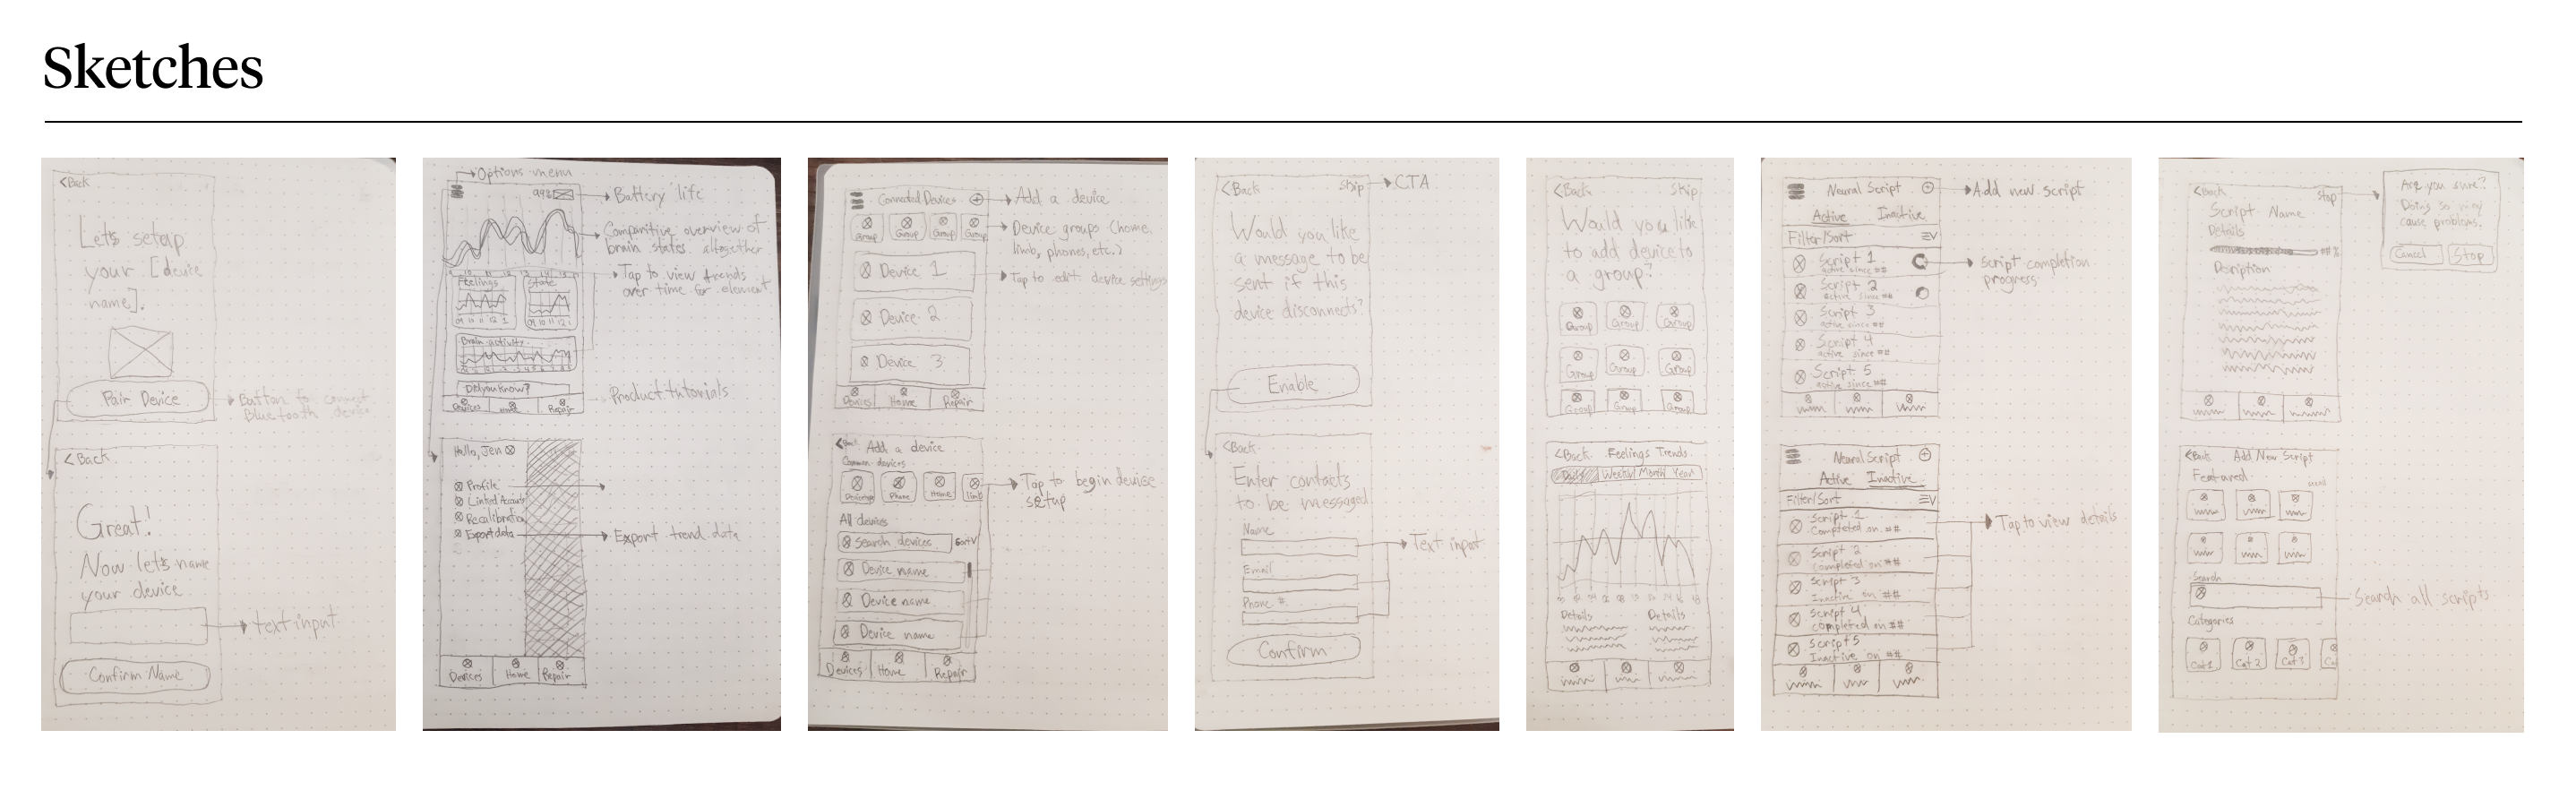 Sketches
<Back
Let's setup
your [device
name].
Pair Device
Button to connect
Bluetooth device
<Back
Great!
Now let's name
your device
text input
Confirm Name
Options menu
99%
Battery life
Comparitive overview of
brain states altogether
Tap to view trends
over time for element
Feelings
State
Brain activity
Did you know?
Product tutorials
Devices
Home
Repair
Hello, Jen
Profile
Linked Accounts
Recalibration
Export data
Export trend data
Devices
Home
Repair
Connected Devices
Add a device
Group
Group
Group
Group
Device groups (home,
limb, phones, etc.)
Device 1
Tap to edit device settings
Device 2
Device 3
Devices
Home
Repair
<Back
Add a device
Common devices
Phone
Home
limb
Tap to begin device
setup
All devices
Search devices
Sort V
Device name
Device name
Device name
Devices
Home
Repair
<Back
Skip
CTA
Would you like
a message to be
sent if this
device disconnects?
Enable
<Back
Enter contacts
to be messaged
Name
Email
Phone #
Text input
Confirm
<Back
Skip
Would you like
to add device to
a group?
Group
Group
Group
Group
Group
Group
Group
Group
Group
<Back
Feelings Trends
Daily
Weekly
Month
Year
Details
Details
Neural Script
Add new script
Active
Inactive
Filter/Sort
Script 1
active since ##
Script completion
progress
Script 2
active since ##
Script 3
active since ##
Script 4
active since ##
Script 5
active since ##
Neural Script
Active
Inactive
Filter/Sort
Script 1
Completed on ##
Tap to view details
Script 2
completed on ##
Script 3
Inactive on ##
Script 4
completed on ##
Script 5
Inactive on ##
<Back
Stop
Script Name
Details
##%
Are you sure?
Doing so may
cause problems.
Cancel
Stop
<Back
Add New Script
Featured
Search
Search all scripts
Categories
Cat 1
Cat 2
Cat 3